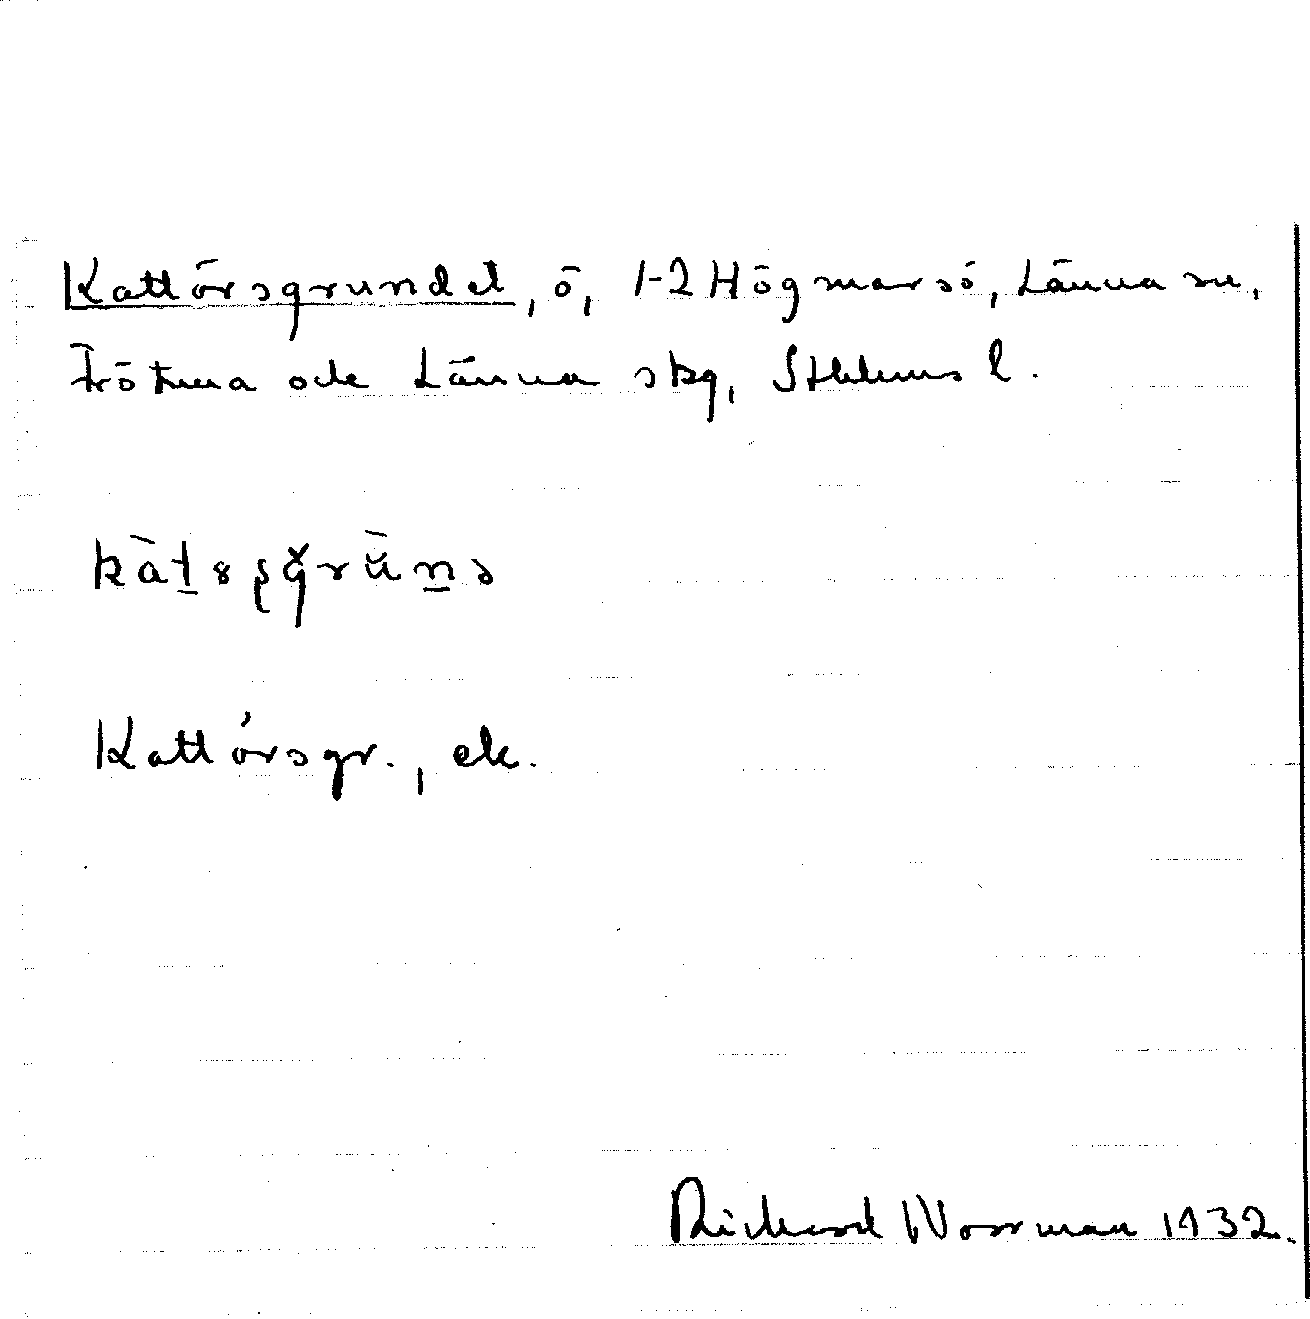 Kattörsgrundet, ö, 1-2 Högmarsö, Länna sn,
Frötuna och Länna skg, Sthlms l.
Kattörsgr., ek.
Richard Norrman 1932.